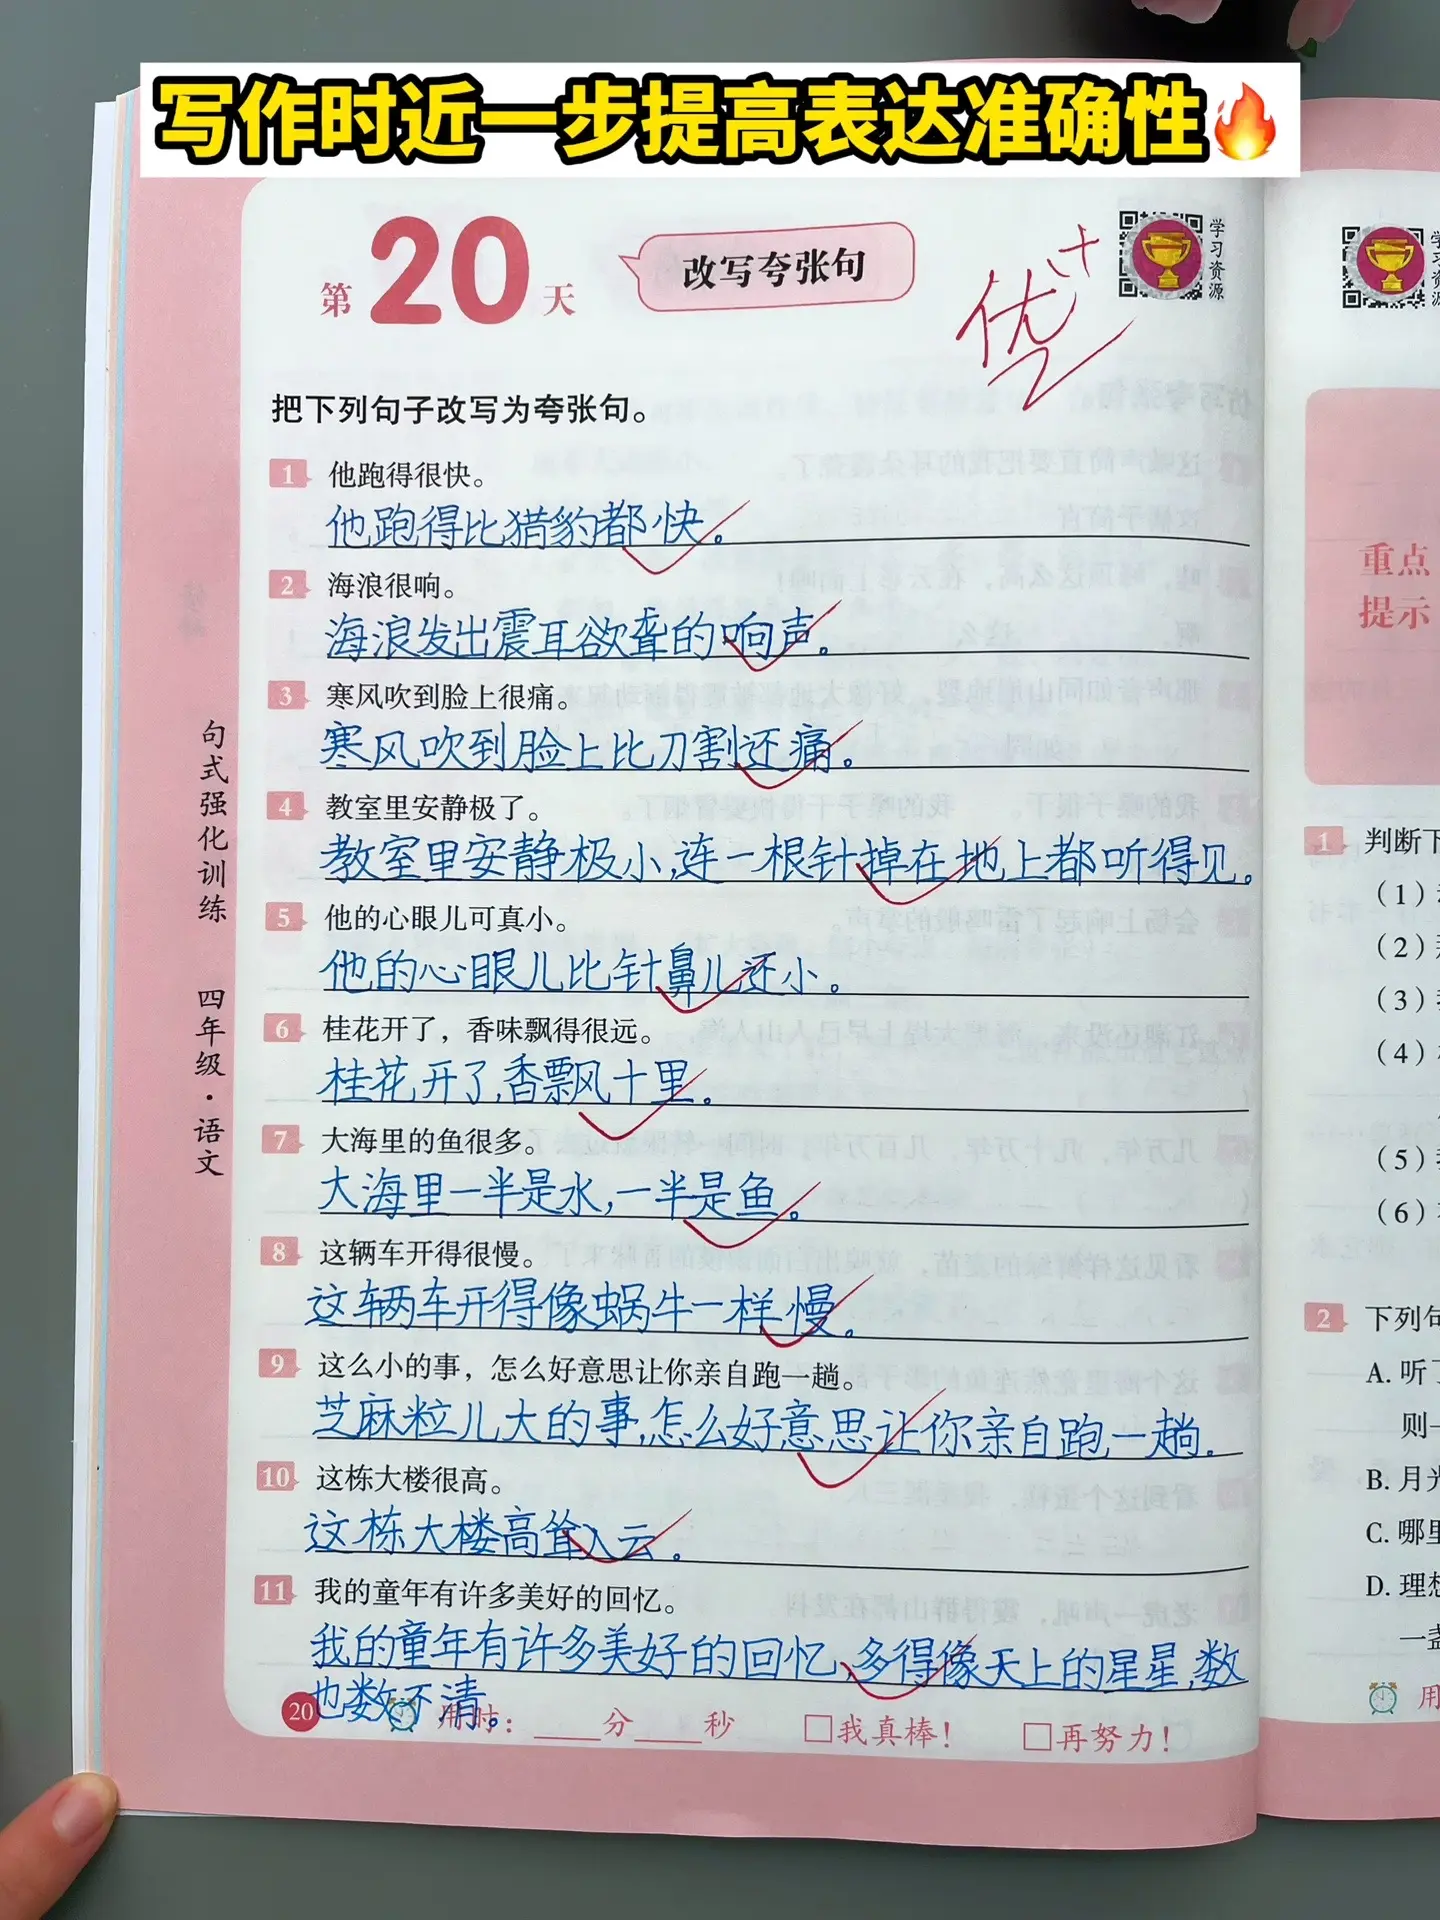 写作时近一步提高表达准确性🔥
第20天
改写夸张句
优+
学习资源
学习资源
把下列句子改写为夸张句。
1 他跑得很快。
他跑得比猎豹都快。
2 海浪很响。
海浪发出震耳欲聋的响声。
3 寒风吹到脸上很痛。
寒风吹到脸上比刀割还痛。
4 教室里安静极了。
教室里安静极小,连一根针掉在地上都听得见。
5 他的心眼儿可真小。
他的心眼儿比针鼻儿还小。
6 桂花开了，香味飘得很远。
桂花开了,香飘十里。
7 大海里的鱼很多。
大海里一半是水,一半是鱼。
8 这辆车开得很慢。
这辆车开得像蜗牛一样慢。
9 这么小的事，怎么好意思让你亲自跑一趟。
芝麻粒儿大的事,怎么好意思让你亲自跑一趟.
10 这栋大楼很高。
这栋大楼高耸入云。
11 我的童年有许多美好的回忆。
我的童年有许多美好的回忆,多得像天上的星星,数
也数不清。
20 用时：____分____秒 □我真棒！ □再努力！
句式强化训练 四年级·语文
重点
提示
1 判断下
（1）
（2）
（3）
（4）
（5）
（6）
2 下列句
A. 听了
则一
B. 月光
C. 哪里
D. 理想
一盏
用